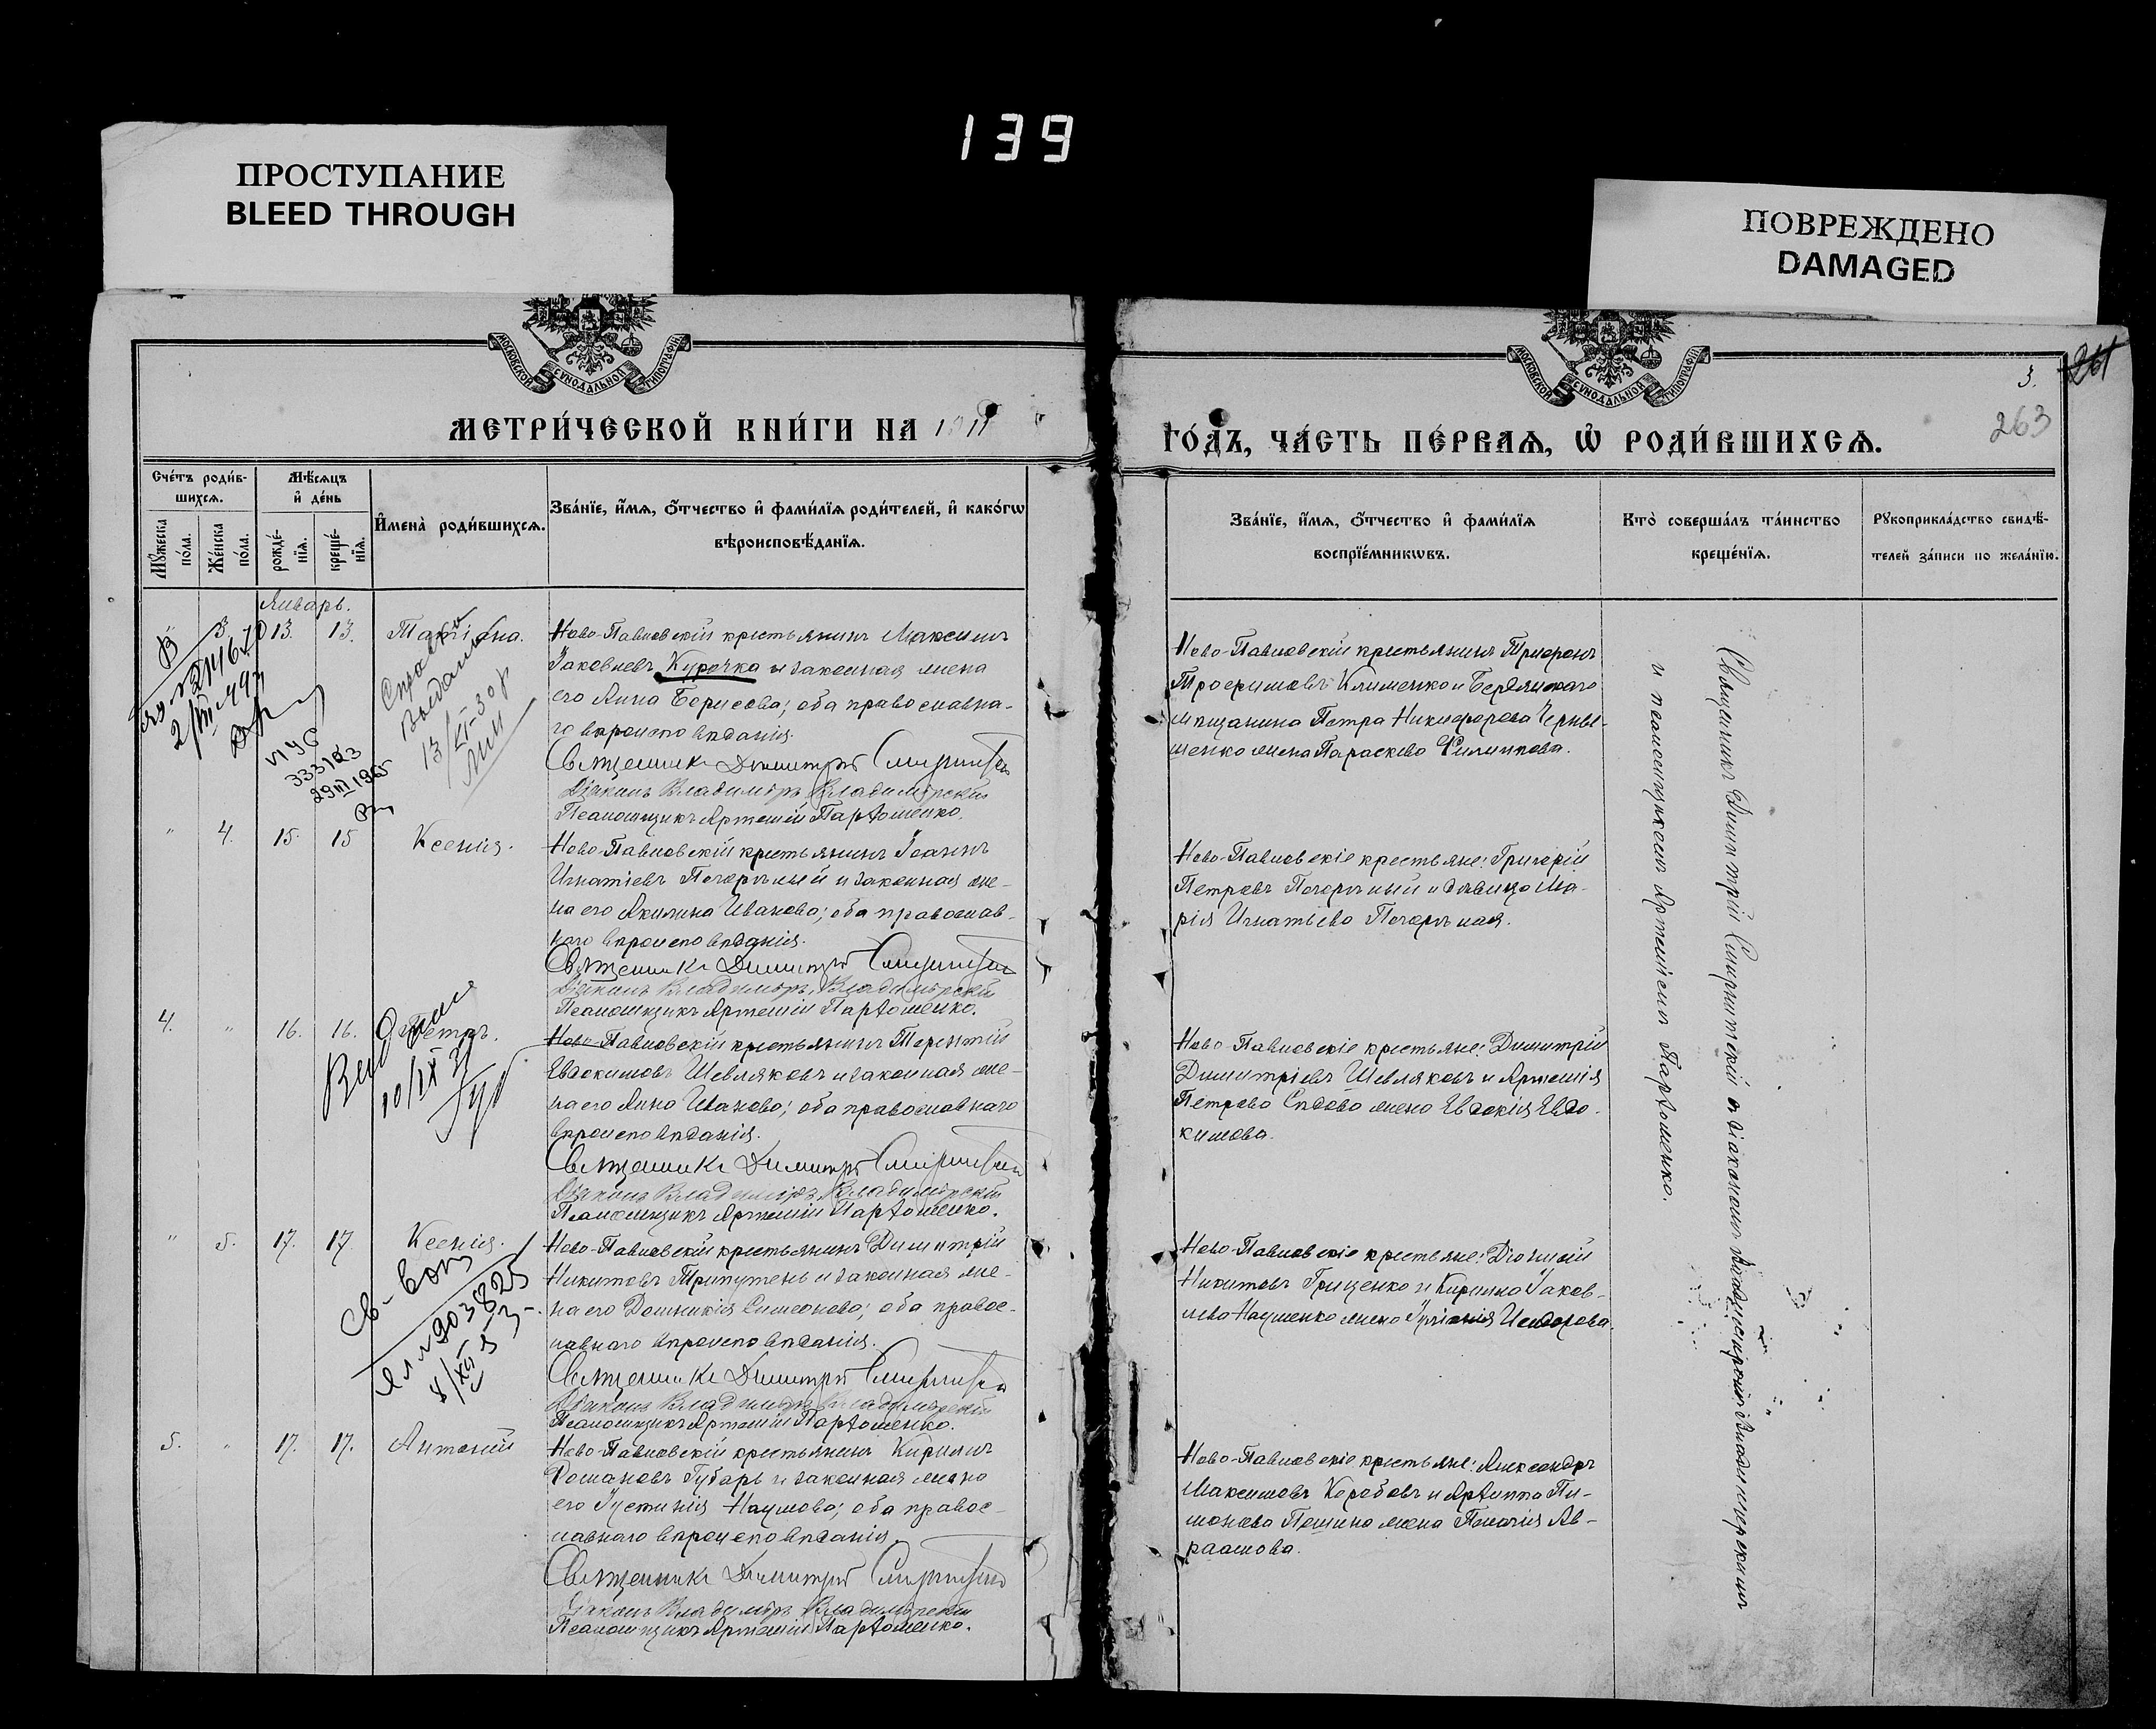 139
ПРОСТУПАНИЕ
BLEED THROUGH
ПОВРЕЖДЕНО
DAMAGED
МОСКОВСКОЙ СѴНОДАЛЬНОЙ ТИПОГРАФІИ
МОСКОВСКОЙ СѴНОДАЛЬНОЙ ТИПОГРАФІИ
3.
261
263
МЕТРИ́ЧЕСКОЙ КНИ́ГИ НА 1911
ГО́ДЪ, ЧА́СТЬ ПЕ́РВАѦ, Ѡ҆ РОДИ́ВШИХСѦ.
Сче́тъ роди́в-
шихсѧ.
Мꙋ́жеска по́ла.
Же́нска по́ла.
Мѣ́сѧцъ
и҆ де́нь
рожде́-
нїѧ.
креще́-
нїѧ.
И҆мена̀ роди́вшихсѧ.
Зва́нїе, и҆́мѧ, ѻ҆́тчество и҆ фами́лїѧ роди́телей, и҆ како́гѡ
вѣроисповѣ́данїѧ.
Зва́нїе, и҆́мѧ, ѻ҆́тчество и҆ фами́лїѧ
воспрїе́мникѡвъ.
Кто̀ соверша́лъ та́инство
креще́нїѧ.
Рꙋкоприкла́дство свидѣ́-
телей за́писи по жела́нїю.
Январь.
" 3 13. 13. Татіана.
Ново-Павловскій крестьянинъ Максимъ
Іаковлевъ Курочка и законная жена
его Анна Борисова; оба православна-
го вѣроисповѣданія.
Священникъ Димитрій
Діаконъ Владиміръ Владимірскій
Псаломщикъ Артемій Парѳоменко.
Ново-Павловскій крестьянинъ Трифонъ
Трофимовъ Клименко и Бердянскаго
мѣщанина Петра Никифорова Черны-
шенко жена Параскева Филиппова.
Справка
выдана
13/VI-30 г
2/VII-49 г
ЧУС
333123
29 III 1965
" 4. 15. 15 Ксенія.
Ново-Павловскій крестьянинъ Іоаннъ
Игнатіевъ Погорѣлый и законная же-
на его Акилина Иванова; оба православ-
наго вѣроисповѣданія.
Священникъ Димитрій
Діаконъ Владиміръ Владимірскій
Псаломщикъ Артемій Парѳоменко.
Ново-Павловскіе крестьяне: Григорій
Петровъ Погорѣлый и дѣвица Ма-
рія Игнатьева Погорѣлая.
4. " 16. 16. Петръ.
Ново-Павловскій крестьянинъ Терентій
Евдокимовъ Шевляковъ и законная же-
на его Анна Иванова; оба православнаго
вѣроисповѣданія.
Священникъ Димитрій
Діаконъ Владиміръ Владимірскій
Псаломщикъ Артемій Парѳоменко.
Ново-Павловскіе крестьяне: Димитрій
Димитріевъ Шевляковъ и Артемія
Петрова Сѣдова жена Евдокія Евдо-
кимова.
10/IX
" 5. 17. 17. Ксенія.
Ново-Павловскій крестьянинъ Димитрій
Никитовъ Трипутень и законная же-
на его Домникія Симеонова; оба правос-
лавнаго вѣроисповѣданія.
Священникъ Димитрій
Діаконъ Владиміръ Владимірскій
Псаломщикъ Артемій Парѳоменко.
Ново-Павловскіе крестьяне: Діонисій
Никитовъ Гриценко и Кирилла Іаков-
лева Науменко жена Іуліанія Исидорова.
5. " 17. 17. Антоній
Ново-Павловскій крестьянинъ Кириллъ
Романовъ Губарь и законная жена
его Іустинія Наумова; оба правос-
лавнаго вѣроисповѣданія.
Священникъ Димитрій
Діаконъ Владиміръ Владимірскій
Псаломщикъ Артемій Парѳоменко.
Ново-Павловскіе крестьяне: Александръ
Максимовъ Коробовъ и Архиппа Пи-
монова Пешина жена Пелагія Ав-
раамова.
Священникъ Димитрій съ діакономъ Владиміромъ Владимірскимъ
и псаломщикомъ Артеміемъ Парѳоменко.